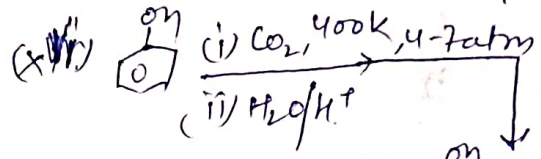 OH
(i) CO2, 400K, 4-7atm
(ii) H2O/H+
OH